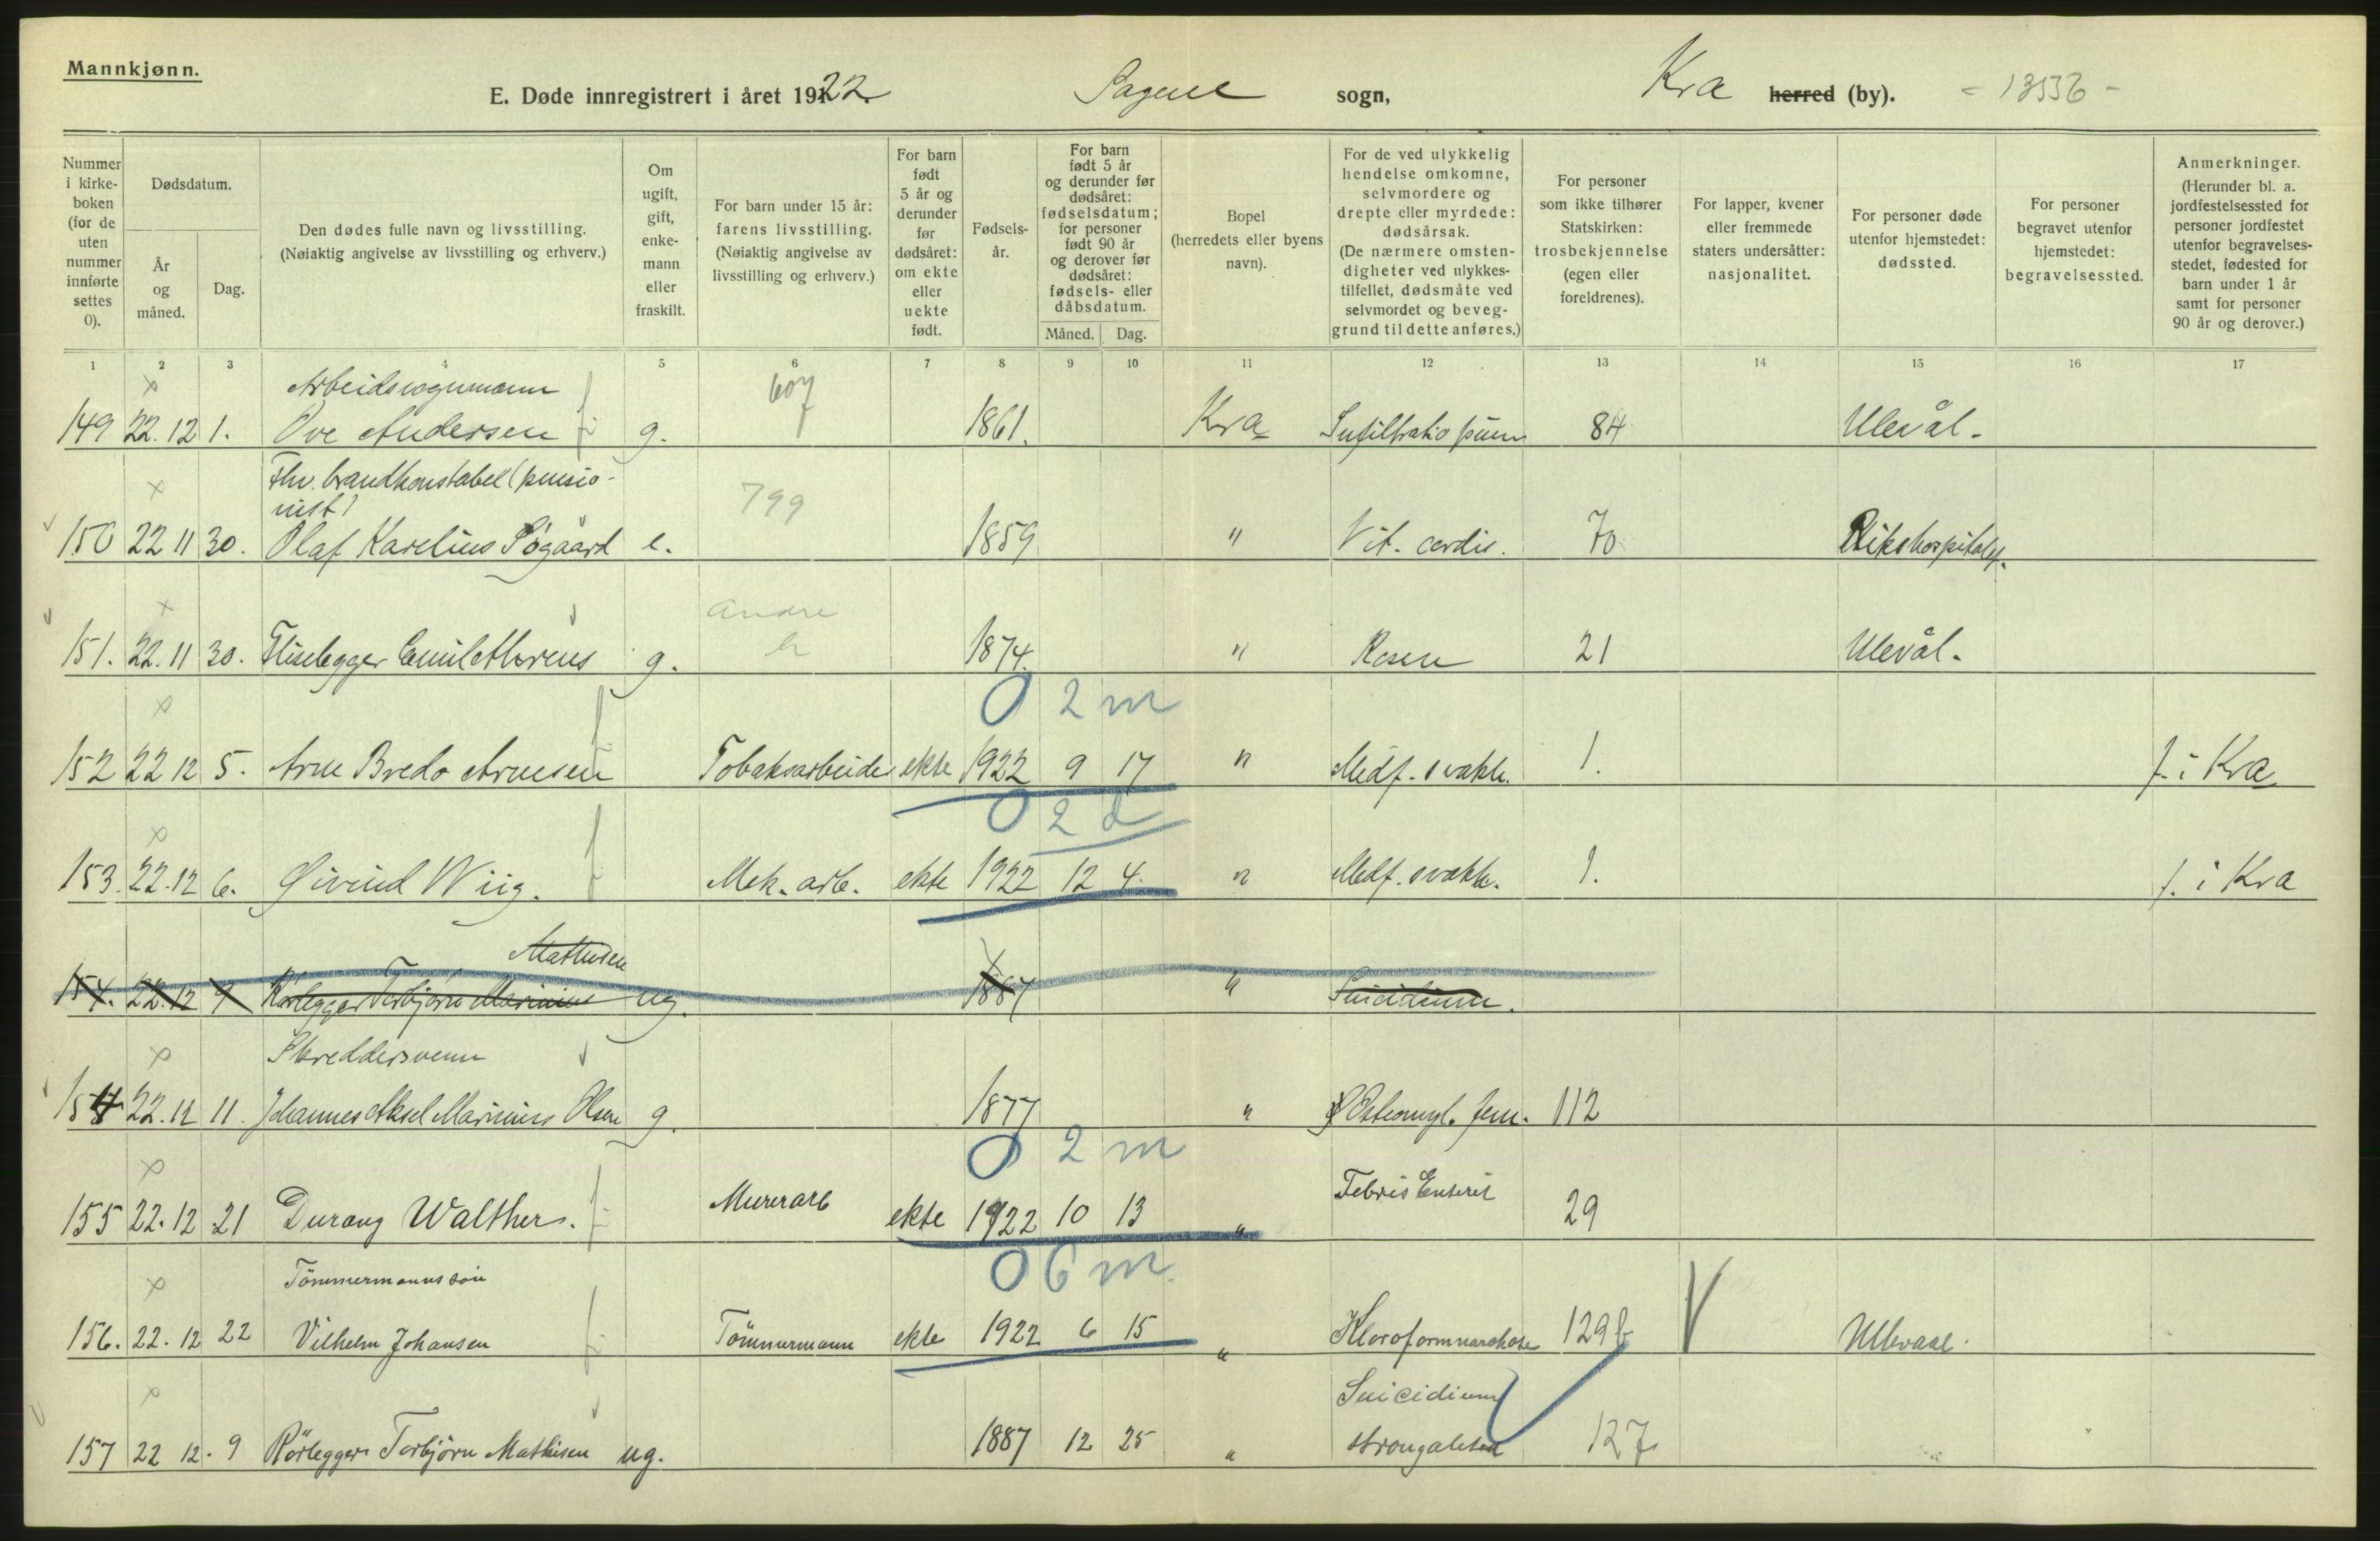 Mannkjønn.
E. Døde innregistrert i året 1922. Sagene sogn, Kra herred (by). - 13536 -
Nummer i kirke-boken (for de uten nummer innførte settes 0).
Dødsdatum.
År og måned.
Dag.
Den dødes fulle navn og livsstilling.
(Nøiaktig angivelse av livsstilling og erhverv.)
Om ugift, gift, enke-mann eller fraskilt.
For barn under 15 år: farens livsstilling. (Nøiaktig angivelse av livsstilling og erhverv.)
For barn født 5 år og derunder før dødsåret: om ekte eller uekte født.
Fødsels-år.
For barn født 5 år og derunder før dødsåret: fødselsdatum; for personer født 90 år og derover før dødsåret: fødsels- eller dåbsdatum.
Måned. Dag.
Bopel (herredets eller byens navn).
For de ved ulykkelig hendelse omkomne, selvmordere og drepte eller myrdede: dødsårsak. (De nærmere omsten-digheter ved ulykkes-tilfellet, dødsmåte ved selvmordet og beveg-grund til dette anføres.)
For personer som ikke tilhører Statskirken: trosbekjennelse (egen eller foreldrenes).
For lapper, kvener eller fremmede staters undersåtter: nasjonalitet.
For personer døde utenfor hjemstedet: dødssted.
For personer begravet utenfor hjemstedet: begravelsessted.
Anmerkninger. (Herunder bl. a. jordfestelsessted for personer jordfestet utenfor begravelses-stedet, fødested for barn under 1 år samt for personer 90 år og derover.)
1 2 3 4 5 6 7 8 9 10 11 12 13 14 15 16 17
Arbeidsvognmann 607
149 22.12 1. Ove Andersen g. 1861. Kra Infiltratio pulm 84 Ulevål.
Fhv. brandkonstabel (pensio-
nist) 799
150 22 11 30. Olaf Karelius Søgaard e. 1859 " Vit. cordis. 70 Rikshospitalet.
andre
151. 22.11 30. Fliselegger Emil Ahrens g. 1874. " Rosen 21 Ulevål.
0 2 m
152 22 12 5. Arne Bredo Arnesen Tobaksarbeider ekte 1922 9 17 " Medf. svakh. 1. f. i Kra
0 2 d
153. 22.12 6. Øivind Wiig. Mek. arb. ekte 1922 12 4. " Medf. svakh. 1. f. i Kra
Mathisen
154. 22.12 9 Rørlegger Torbjørn Marinius ug. 1887 " Suicidium.
Skreddersvenn
154 22.12 11. Johannes Aksel Marinius Olsen g. 1877 " Osteomyl. fem. 112
0 2 m
155 22.12 21 Durang Walthers. Murerarb ekte 1922 10 13 " Febris Enterit 29
Tömmermanns søn 0 6 m.
156. 22.12 22 Vilhelm Johansen Tömmermann ekte 1922 6 15 " Kloroformnarkose 129b V Ullevaal.
Suicidium
157 22 12. 9 Rörlegger Torbjörn Mathisen ug. 1887 12 25 " strangulation 127